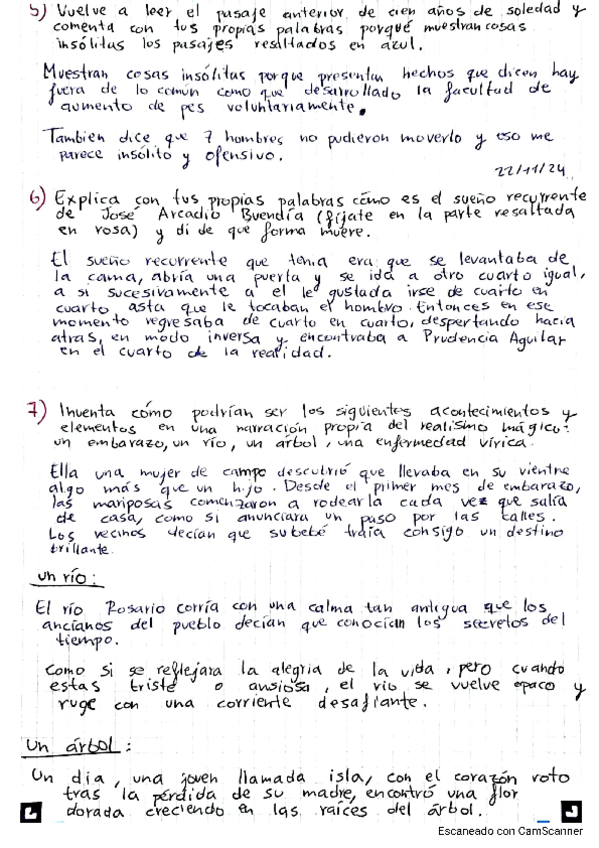 5) Vuelve a leer el pasaje anterior de cien años de soledad y
comenta con tus propias palabras porqué muestran cosas
insólitas los pasajes resaltados en azul.
Muestran cosas insólitas porque presentan hechos que dicen hay
fuera de lo común como que desarrollado la facultad de
aumento de pes voluntariamente.
Tambien dice que 7 hombres no pudieron moverlo y eso me
parece insólito y ofensivo.
22/11/24
6) Explica con tus propias palabras cómo es el sueño recurrente
de José Arcadio Buendía (fíjate en la parte resaltada
en rosa) y di de que forma muere.
El sueño recurrente que tenia era que se levantaba de
la cama, abría una puerta y se ida a otro cuarto igual,
a si sucesivamente a el le gustada irse de cuarto en
cuarto asta que le tocaban el hombro. Entonces en ese
momento regresaba de cuarto en cuarto, despertando hacia
atras, en modo inversa y encontraba a Prudencia Aguilar
en el cuarto de la realidad.
7) Inventa cómo podrían ser los siguientes acontecimientos y
elementos en una narración propia del realismo mágico:
un embarazo, un río, un árbol, una enfermedad vírica.
Ella una mujer de campo descubrió que llevaba en su vientre
algo más que un hijo. Desde el primer mes de embarazo,
las mariposas comenzaron a rodearla cada vez que salía
de casa, como si anunciara un paso por las calles.
Los vecinos decían que su bebé traía consigo un destino
brillante.
un río:
El río Rosario corría con una calma tan antigua que los
ancianos del pueblo decían que conocían los secretos del
tiempo.
Como si se reflejara la alegria de la vida, pero cuando
estas triste o ansiosa, el rio se vuelve opaco y
ruge con una corriente desafiante.
Un árbol:
Un dia, una joven llamada isla, con el corazón roto
tras la pérdida de su madre, encontró una flor
dorada creciendo en las raíces del árbol.
Escaneado con CamScanner